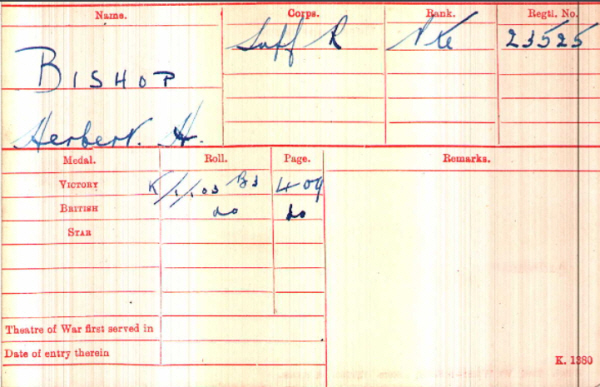 Name. Corps. Rank. Regtl. No.
BISHOP Suff R Pte 23525
Herbert. H.
Medal. Roll. Page. Remarks.
VICTORY K/1/103 B3 409
BRITISH do do
STAR
Theatre of War first served in
Date of entry therein
K. 1380